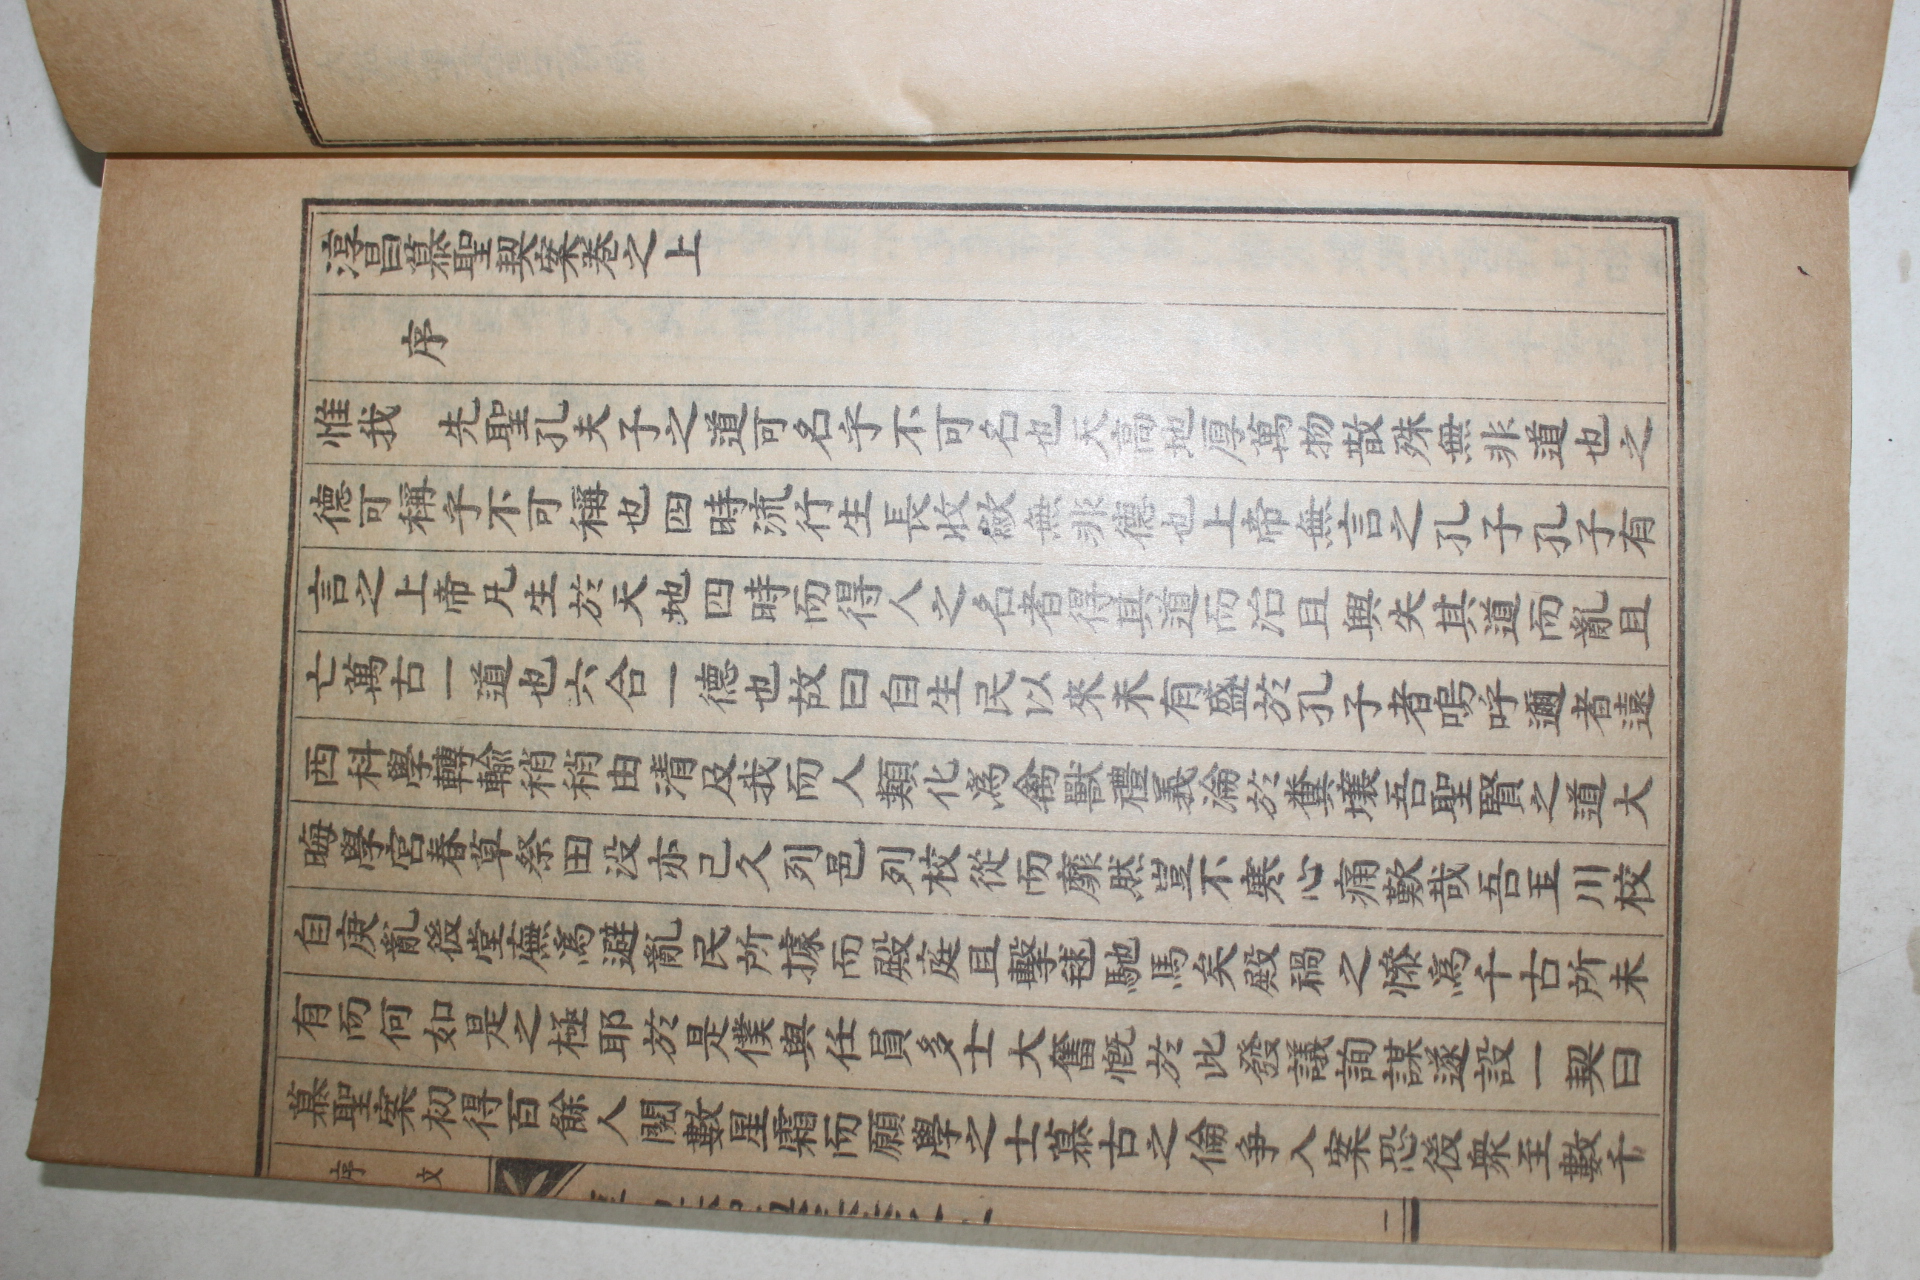 淳昌慕聖契案卷之上
序
惟我　先聖孔夫子之道可名字不可名也天高地厚萬物散殊無非道也之
德可稱字不可稱也四時流行生長收斂無非德也上帝無言之孔子孔子有
言之上帝凡生於天地四時而得人之名者得其道而治且興失其道而亂且
亡萬古一道也六合一德也故曰自生民以來未有盛於孔子者嗚呼邇者遠
西科學轉輸稍稍由清及我而人類化爲禽獸禮義淪於糞壤吾聖賢之道大
晦學宮春草祭田没亦已久列邑列校從而靡然豈不寒心痛歎哉吾玉川校
自庚亂後堂廡爲避亂民所據而殿庭且擊毬馳馬矣殿禍之慘爲千古所未
有而何如是之極耶於是僕與任員多士大奮慨於此發議詢謀遂設一契曰
慕聖案初得百餘人閱數星霜而願學之士慕古之倫爭入案恐後衆至數千
序文
二